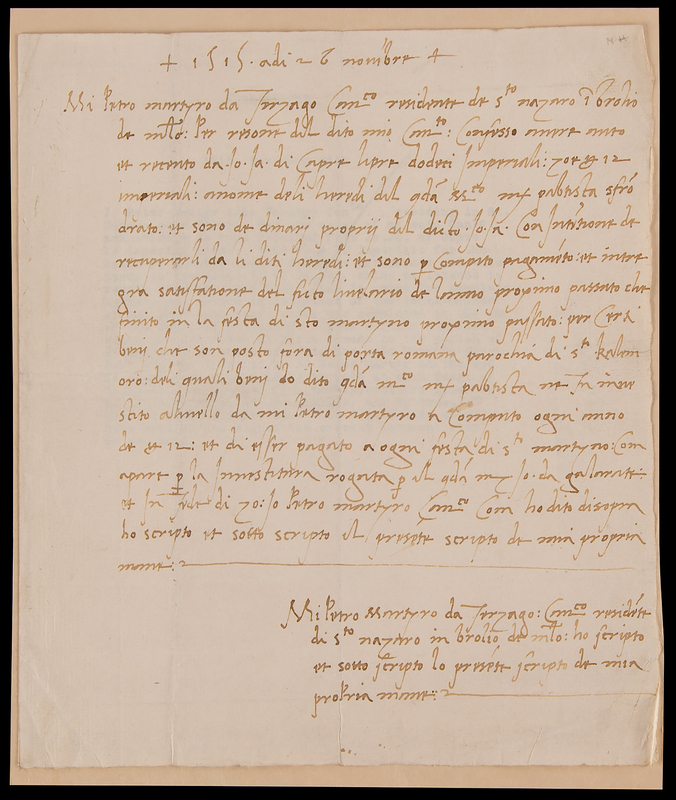 + 1515. adi 26 novẽbre +
Mi Petro martyro da Terzago Canco residente de sto nazaro ĩ brolio
de mllo: Per resone dil dito mio Canto: Confesso avere auto
et receuto da. Jo. Ja. di Capre lipre dodeci Imperiali: zoe 12
imperiali: anome deli heredi dil qdã Mco pabtista sfrõ
drato: et sono de dinari proprij dil dicto. Jo. Ja. Cõa Intẽtione de
recuperarli da li diti heredi: et sono p Computo pagamẽto: et intre
gra satisfatione del ficto livelario de lanno proximo passato che
finito in la festa di sto martyno proximo passato: per Certi
beni che son posto fora di porta romana parochia di sto kalim
oro: deli quali beni do dito qdã mco pabtista ne inve
stito alivello da mi Petro martyro a Computo ogni anno
de 12: et di esser pagato a ogni festa di sto martyno: Com
apare p la Investitura rogata p il qdã Jo: da galarate
et In fede di zo: Jo Petro martyro Canco Com ho dito disopra
ho scripto et sotto scripto il presẽte scripto de mia propria
mane:
Mi Petro Martyro da Terzago: Canco residẽte
di sto nazaro in brolio de mllo: ho scripto
et sotto scripto lo presẽte scripto de mia
propria mane: